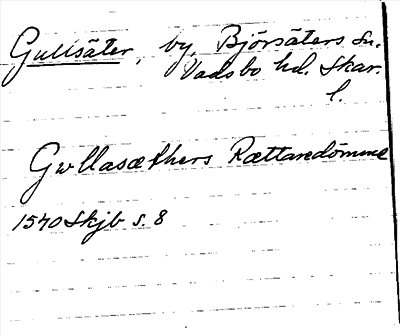 Gullsäter, by, Björsäters sn.
Vadsbo hd. Skar.
l.
Gwllasæthers Rættaredömme
1540 Skjb s. 8